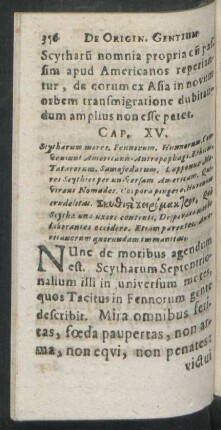 356 DE ORIGIN. GENTIUM
Scytharũ nomnia propria cũ
sim apud Americanos
tur, de eorum ex Asia in novum
orbem transmigratione dubitan-
dum amplius non esse patet.
CAP. XV.
Scytharum mores. Fennorum. Hunnorum.
Geniant Americani. Antropophagi.
Tatarorum. Samojedarum, Lapponum
res Scythici per universam Americam.
virans Nomades. Corpora pingere,
crudelitas.
Scytha una uxore contenti,
laborantes occidere. Etiam parentes,
quorundam immanitas.
NUnc de moribus agendum
est. Scytharum Septentrio-
nalium illi in universum
quos Tacitus in Fennorum gente
describit. Mira omnibus feri-
tas, fœda paupertas, non ar-
ma, non eqvi, non penates:
victui